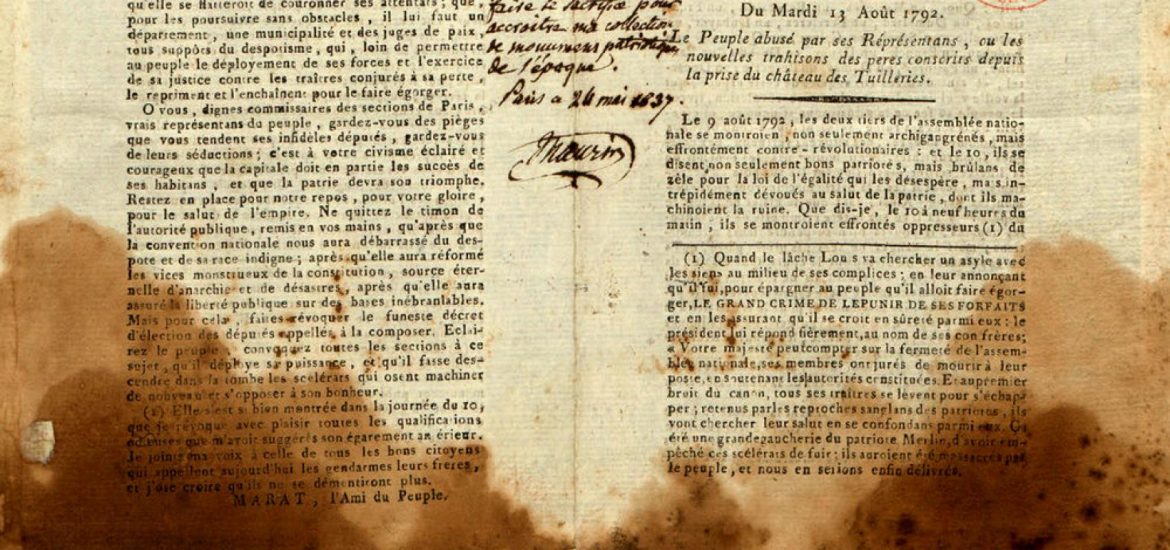 qu'elle se flatteroit de couronner ses attentats ; que,
pour les poursuivre sans obstacles, il lui faut un
département, une municipalité et des juges de paix,
tous suppôts du despotisme, qui, loin de permettre
au peuple le déployement de ses forces et l'exercice
de sa justice contre les traîtres conjurés à sa perte,
le repriment et l'enchaînent pour le faire égorger.
O vous, dignes commissaires des sections de Paris,
vrais représentans du peuple, gardez-vous des pièges
que vous tendent ses infidèles députés, gardez-vous
de leurs séductions ; c'est à votre civisme éclairé et
courageux que la capitale doit en partie les succès de
ses habitans, et que la patrie devra son triomphe.
Restez en place pour notre repos, pour votre gloire,
pour le salut de l'empire. Ne quittez le timon de
l'autorité publique, remis en vos mains, qu'après que
la convention nationale nous aura débarrassé du des-
pote et de sa race indigne ; après qu'elle aura réformé
les vices monstrueux de la constitution, source éter-
nelle d'anarchie et de désastres, après qu'elle aura
assuré la liberté publique sur des bases inébranlables.
Mais pour cela, faites révoquer le funeste décret
d'élection des députés appellés à la composer. Eclai-
rez le peuple, convoquez toutes les sections à ce
sujet, qu'il déploye sa puissance, et qu'il fasse des-
cendre dans la tombe les scélérats qui osent machiner
de nouveau et s'opposer à son bonheur.
(1) Elle s'est si bien montrée dans la journée du 10,
que je révoque avec plaisir toutes les qualifications
odieuses que m'avoit suggérés son égarement antérieur.
Je joins ma voix à celle de tous les bons citoyens
qui appellent aujourd'hui les gendarmes leurs frères,
et j'ose croire qu'ils ne se démentiront plus.
MARAT, l'Ami du Peuple.
faire le sacrifice pour
accroitre ma collection
de monumens patriotiques
de l'époque.
Paris a 24 mai 1837.
Maurin
Du Mardi 13 Août 1792.
Le Peuple abusé par ses Réprésentans, ou les
nouvelles trahisons des peres conscrits depuis
la prise du château des Tuilleries.
Le 9 août 1792, les deux tiers de l'assemblée natio-
nale se montroien, non seulement archigangrénés, mais
effrontément contre-révolutionaires : et le 10, ils se
disent non seulement bons patriotes, mais brûlans de
zèle pour la loi de l'égalité qui les désespère, mas in-
trépidément dévoués au salut de la patrie, dont ils ma-
chinoient la ruine. Que dis-je, le 10 à neuf heures du
matin, ils se montroient effrontés oppresseurs (1) du
(1) Quand le lâche Lous va chercher un asyle avec
les siens au milieu de ses complices ; en leur annonçant
qu'il fui, pour épargner au peuple qu'il alloit faire égor-
ger, LE GRAND CRIME DE LE PUNIR DE SES FORFAITS
et en les assurant qu'il se croit en sûreté parmi eux : le
président lui répond fièrement, au nom de ses confrères ;
« Votre majesté peut compter sur la fermeté de l'assem-
blée nationale, ses membres ont jurés de mourir à leur
poste, en soutenant les autorités constituées. Et au premier
bruit du canon, tous ses traîtres se lèvent pour s'échap
per ; retenus par les reproches sanglans des patriotes, ils
vont chercher leur salut en se confondans parmi eux. Ça
été une grande gaucherie du patriote Merlin, d'avoir em-
pêché ces scélérats de fuir ; ils auroient été massacrés par
le peuple, et nous en serions enfin délivrés.